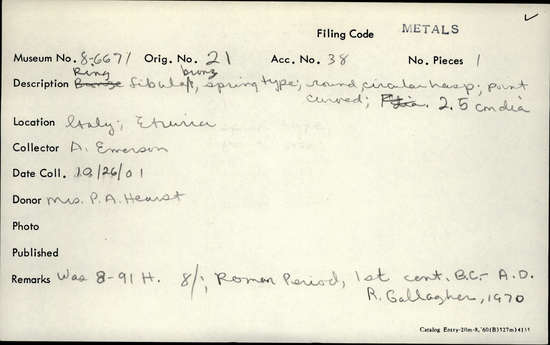 Filing Code METALS
Museum No. 8-6671 Orig. No. 21 Acc. No. 38 No. Pieces 1
Ring bronz
Description Fibula, spring type; round, circular hasp; point
curved; 2.5 cm dia
Location Italy; Etruria
Collector A. Emerson
Date Coll. 10/26/01
Donor Mrs. P.A. Hearst
Photo
Published
Remarks Was 8-91 H. 8/; Roman Period, 1st cent. B.C.- A.D.
R. Gallagher, 1970
Catalog Entry-20m-8,'60(B)527m)4188